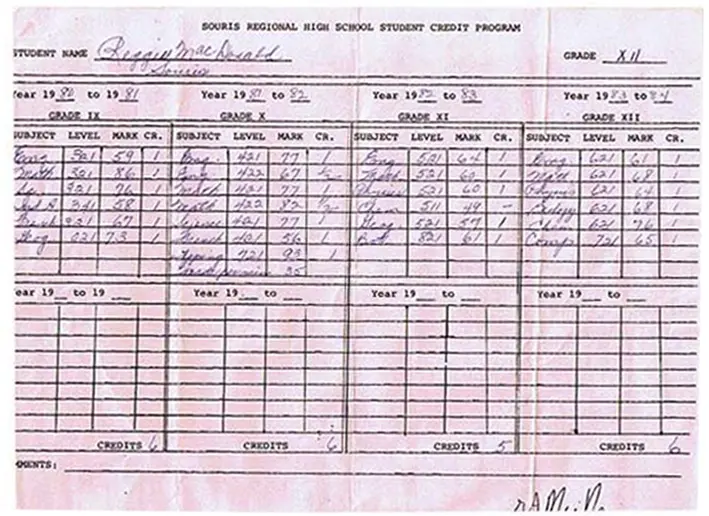 SOURIS REGIONAL HIGH SCHOOL STUDENT CREDIT PROGRAM
STUDENT NAME Reggie MacDonald GRADE XII
Souris
Year 19 80 to 19 81 Year 19 81 to 82 Year 19 82 to 83 Year 19 83 to 84
GRADE IX GRADE X GRADE XI GRADE XII
SUBJECT LEVEL MARK CR. SUBJECT LEVEL MARK CR. SUBJECT LEVEL MARK CR. SUBJECT LEVEL MARK CR.
Eng 321 59 1 Eng. 421 77 1 Eng 521 64 1 Eng 621 61 1
Math 321 86 1 Eng. 422 67 1/2 Math 521 60 1 Math 621 68 1
Sc. 321 76 1 Math 421 77 1 Physics 521 60 1 Physics 621 64 1
Ind A 341 58 1 Math 422 82 1/2 Chem 511 49 - 621 68 1
French 321 67 1 Science 421 77 1 Geog 521 59 1 621 76 1
Geog 021 73 1 French 421 56 1 821 61 1 Comp 721 65 1
Typing 721 93 1
35
Year 19 to 19 Year 19 to Year 19 to Year 19 to
CREDITS 6 CREDITS 6 CREDITS 5 CREDITS 6
COMMENTS: